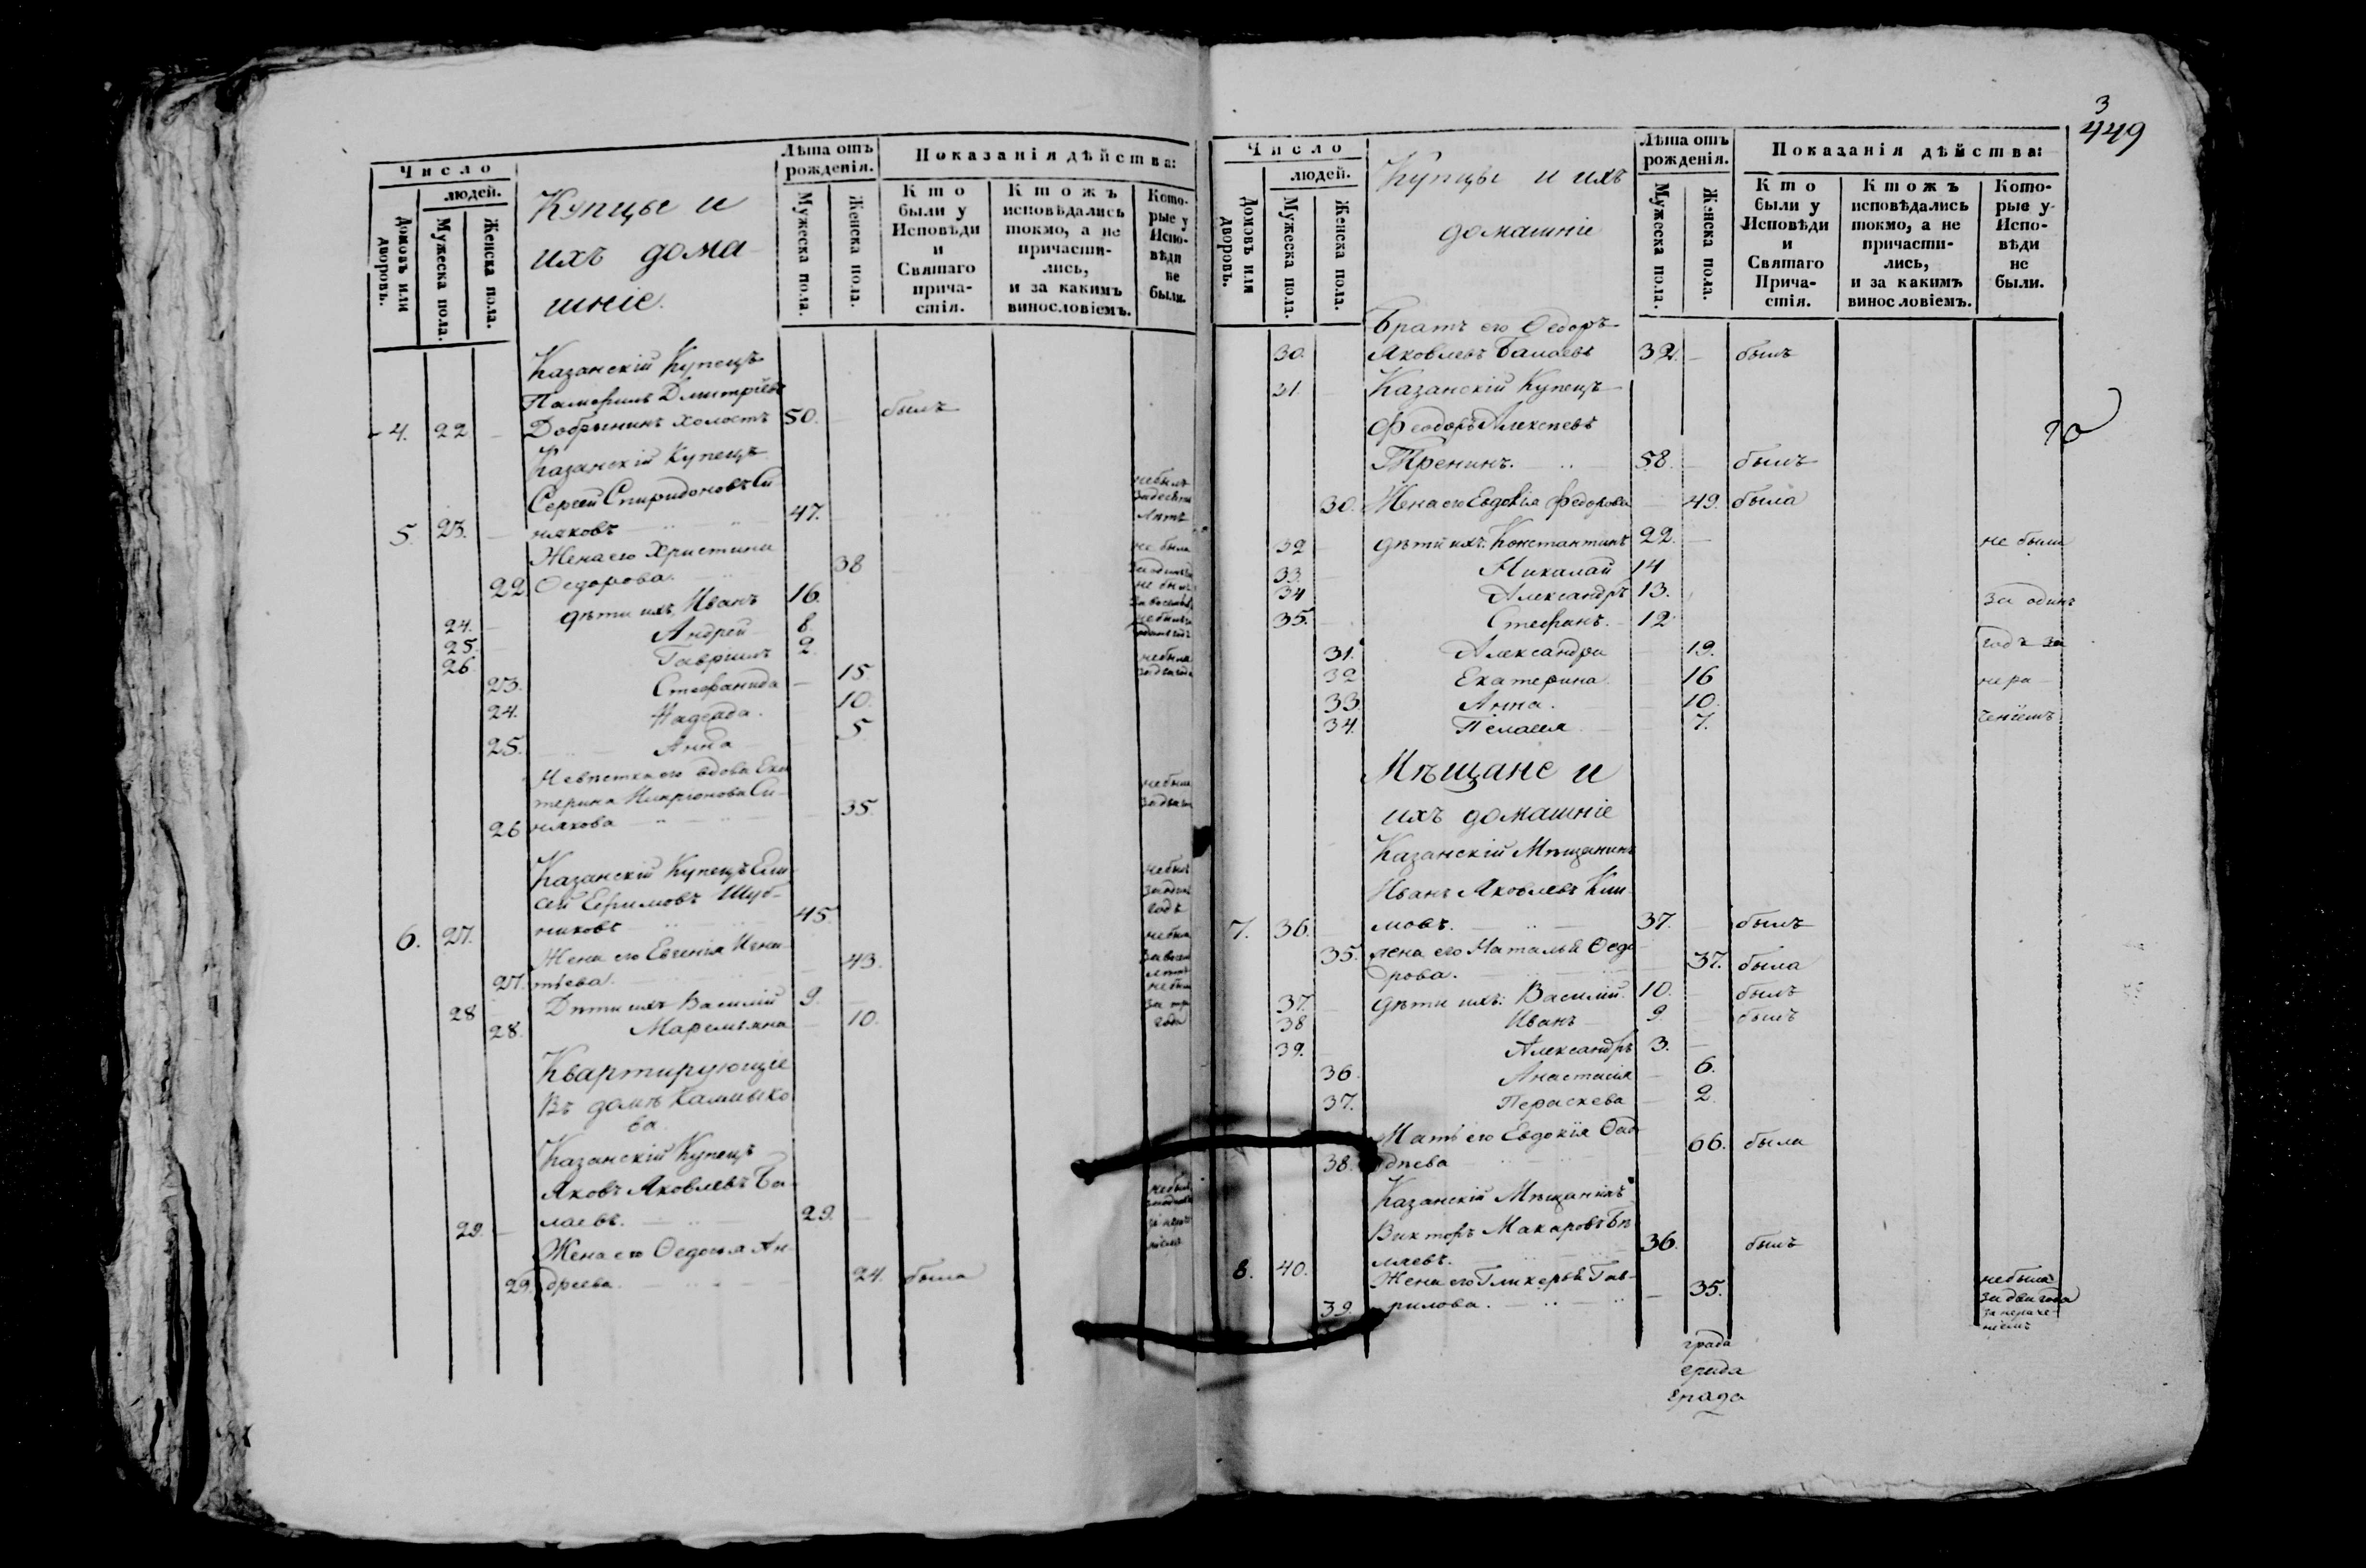 Число
людей.
Домовъ или дворовъ.
Мужеска пола.
Женска пола.
Купцы и
ихъ дома-
шніе.
Лѣта отъ рожденія.
Мужеска пола.
Женска пола.
Показанія дѣйства:
Кто были у Исповѣди и Святаго причастія.
Ктожъ исповѣдались токмо, а не причастились, и за какимъ винословіемъ.
Которые у Исповѣди не были.
Казанскій Купецъ
Дмитріевъ
4. 22 Добрынинъ холостъ 50. былъ
Казанскій Купецъ
Сергей Спиридоновъ Си-
5. 23. няковъ 47. небылъ
Жена его Христина
22 Ѳедорова. 38 не была
24. дѣти ихъ, Иванъ 16.
25. Андрей 8.
26 Гавріилъ 2.
23. Стефанида 15.
24. Надежда. 10.
25. Анна 5
Невѣстка его вдова Ека
терина Иларіонова Си-
26 някова 35. небыла
Казанскій Купецъ Ели-
сей Ефимовъ Шуб-
6. 27. никовъ 45. небылъ
годъ
Жена его Евгенія Игна-
27. тьева. 43. небыла
28 Дѣти ихъ Василій 9.
28. Маремьяна 10.
Квартирующіе
Въ домѣ Калмыко
ва.
Казанскій Купецъ
Яковъ Яковлевъ Ба-
29. лаевъ. 29.
Жена его Ѳедосья Ан-
29. дреева. 24. была
3
449
Число
людей.
Домовъ или дворовъ.
Мужеска пола.
Женска пола.
Купцы и ихъ
домашніе
Лѣта отъ рожденія.
Мужеска пола.
Женска пола.
Показанія дѣйства:
Кто были у Исповѣди и Святаго Причастія.
Ктожъ исповѣдались токмо, а не причастились, и за какимъ винословіемъ.
Которые у Исповѣди не были.
Братъ его Ѳедоръ
30. Яковлевъ Балаевъ 32. былъ
31. Казанскій Купецъ
Феодоръ Алексѣевъ
Тренинъ. 58. былъ
30. Жена его Евдокія Федорова 49. была
32 дѣти ихъ: Константинъ 22. не были
33. Николай 14
34 Александръ 13. за одинъ
35. Стефанъ. 12
31. Александра 19. годъ за
32 Екатерина. 16 нера-
33. Анна. 10.
34. Пелагея 7. ченіемъ
Мѣщане и
ихъ домашніе
Казанскій Мѣщанинъ
Иванъ Яковлевъ Кли-
7. 36. мовъ. 37. былъ
35. Жена его Наталья Ѳедо
рова. 37. была
37. дѣти ихъ: Василій. 10. былъ
38 Иванъ 9. былъ
39. Александръ 3.
36. Анастасія 6.
37. Пераскева 2.
Мать его Евдокія Ѳад-
38. дѣева 66. была
Казанскій Мѣщанинъ
Викторъ Макаровъ Бѣ
8. 40. ляевъ. 36. былъ
Жена его Гликерья Гав-
39. рилова. 35. небыла
за два года
за нераче-
ніемъ
града
града
града